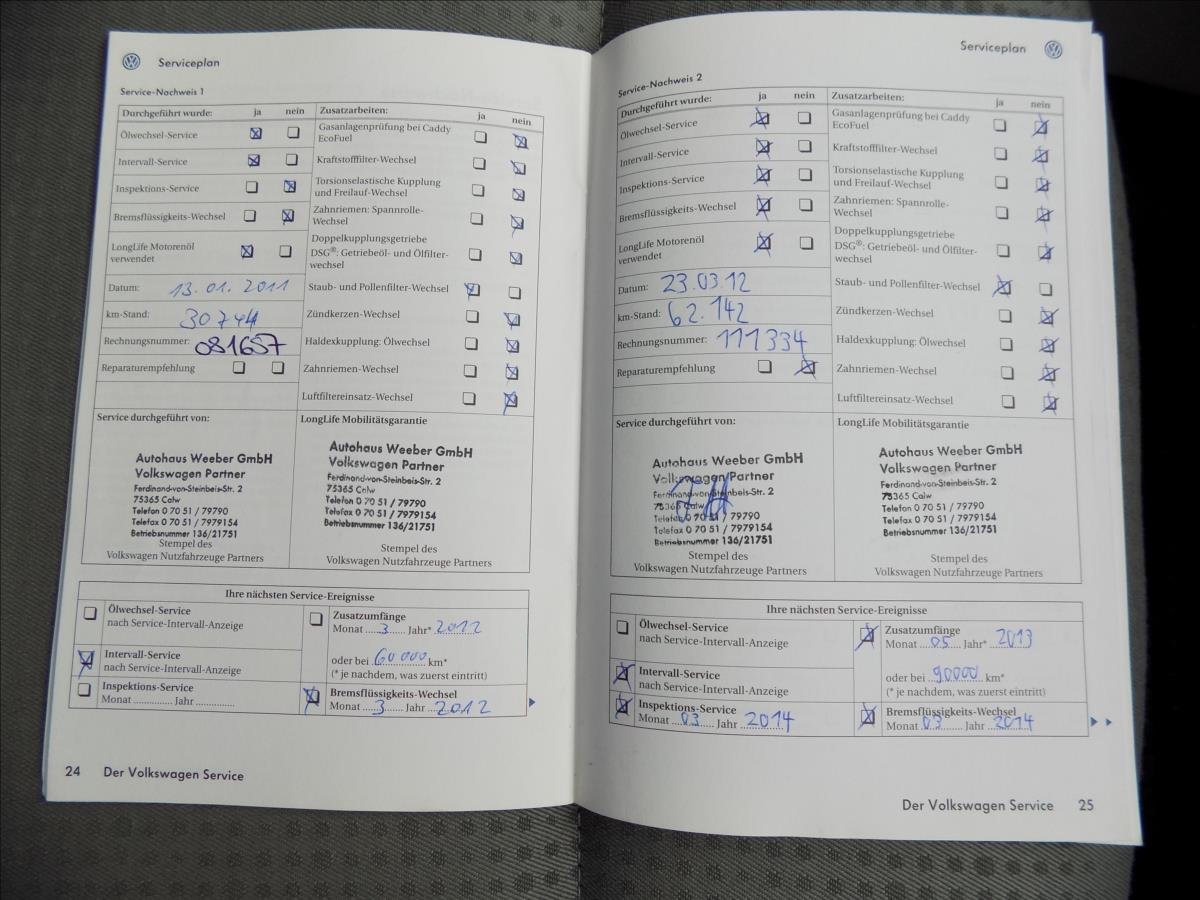 Serviceplan
Service-Nachweis 1
Durchgeführt wurde: ja nein Zusatzarbeiten: ja nein
Ölwechsel-Service Gasanlagenprüfung bei Caddy
EcoFuel
Intervall-Service Kraftstofffilter-Wechsel
Inspektions-Service Torsionselastische Kupplung
und Freilauf-Wechsel
Bremsflüssigkeits-Wechsel Zahnriemen: Spannrolle-
Wechsel
LongLife Motorenöl
verwendet
Doppelkupplungsgetriebe
DSG®: Getriebeöl- und Ölfilter-
wechsel
Datum: 13.01.2011 Staub- und Pollenfilter-Wechsel
km-Stand: 30744 Zündkerzen-Wechsel
Rechnungsnummer: 081657 Haldexkupplung: Ölwechsel
Reparaturempfehlung Zahnriemen-Wechsel
Luftfiltereinsatz-Wechsel
Service durchgeführt von:
Autohaus Weeber GmbH
Volkswagen Partner
Ferdinand-von-Steinbeis-Str. 2
75365 Calw
Telefon 0 70 51 / 79790
Telefax 0 70 51 / 7979154
Betriebsnummer 136/21751
Stempel des
Volkswagen Nutzfahrzeuge Partners
LongLife Mobilitätsgarantie
Autohaus Weeber GmbH
Volkswagen Partner
Ferdinand-von-Steinbeis-Str. 2
75365 Calw
Telefon 0 70 51 / 79790
Telefax 0 70 51 / 7979154
Betriebsnummer 136/21751
Stempel des
Volkswagen Nutzfahrzeuge Partners
Ihre nächsten Service-Ereignisse
Ölwechsel-Service
nach Service-Intervall-Anzeige
Intervall-Service
nach Service-Intervall-Anzeige
Inspektions-Service
Monat .............. Jahr ..............
Zusatzumfänge
Monat 3 Jahr* 2012
oder bei 60000 km*
(* je nachdem, was zuerst eintritt)
Bremsflüssigkeits-Wechsel
Monat 3 Jahr 2012
24 Der Volkswagen Service
Serviceplan
Service-Nachweis 2
Durchgeführt wurde: ja nein Zusatzarbeiten: ja nein
Ölwechsel-Service Gasanlagenprüfung bei Caddy
EcoFuel
Intervall-Service Kraftstofffilter-Wechsel
Inspektions-Service Torsionselastische Kupplung
und Freilauf-Wechsel
Bremsflüssigkeits-Wechsel Zahnriemen: Spannrolle-
Wechsel
LongLife Motorenöl
verwendet
Doppelkupplungsgetriebe
DSG®: Getriebeöl- und Ölfilter-
wechsel
Datum: 23.03.12 Staub- und Pollenfilter-Wechsel
km-Stand: 62.142 Zündkerzen-Wechsel
Rechnungsnummer: 111334 Haldexkupplung: Ölwechsel
Reparaturempfehlung Zahnriemen-Wechsel
Luftfiltereinsatz-Wechsel
Service durchgeführt von:
Autohaus Weeber GmbH
Volkswagen Partner
Ferdinand-von-Steinbeis-Str. 2
75365 Calw
Telefon 0 70 51 / 79790
Telefax 0 70 51 / 7979154
Betriebsnummer 136/21751
Stempel des
Volkswagen Nutzfahrzeuge Partners
LongLife Mobilitätsgarantie
Autohaus Weeber GmbH
Volkswagen Partner
Ferdinand-von-Steinbeis-Str. 2
75365 Calw
Telefon 0 70 51 / 79790
Telefax 0 70 51 / 7979154
Betriebsnummer 136/21751
Stempel des
Volkswagen Nutzfahrzeuge Partners
Ihre nächsten Service-Ereignisse
Ölwechsel-Service
nach Service-Intervall-Anzeige
Intervall-Service
nach Service-Intervall-Anzeige
Inspektions-Service
Monat 03 Jahr 2014
Zusatzumfänge
Monat 05 Jahr* 2013
oder bei 90000 km*
(* je nachdem, was zuerst eintritt)
Bremsflüssigkeits-Wechsel
Monat 03 Jahr 2014
Der Volkswagen Service 25